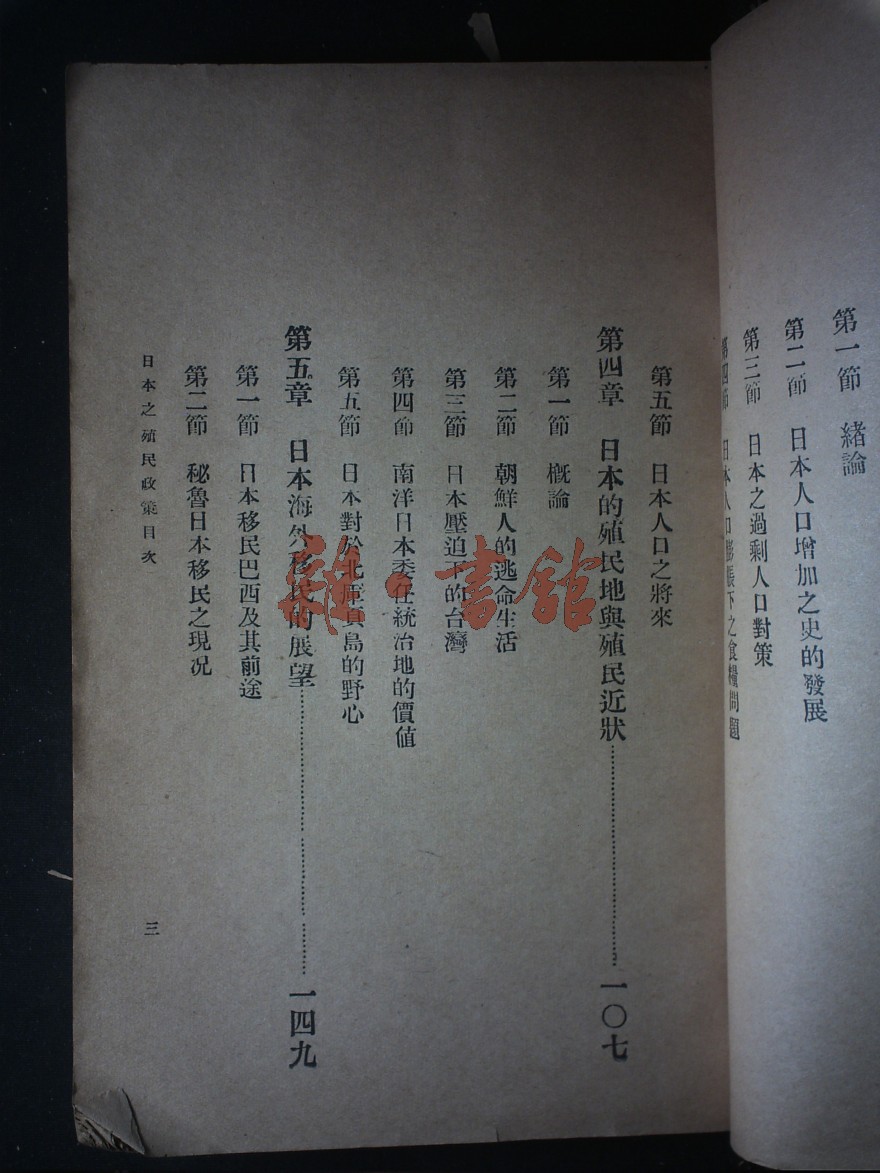 第一節　緒論
第二節　日本人口增加之史的發展
第三節　日本之過剩人口對策
第四節　日本人口膨脹下之食糧問題
第五節　日本人口之將來
第四章　日本的殖民地與殖民近狀……一〇七
第一節　概論
第二節　朝鮮人的逃命生活
第三節　日本壓迫下的台灣
第四節　南洋日本委任統治地的價值
第五節　日本對於北庫頁島的野心
第五章　日本海外移民的展望……一四九
第一節　日本移民巴西及其前途
第二節　秘魯日本移民之現况
日本之殖民政策目次
三